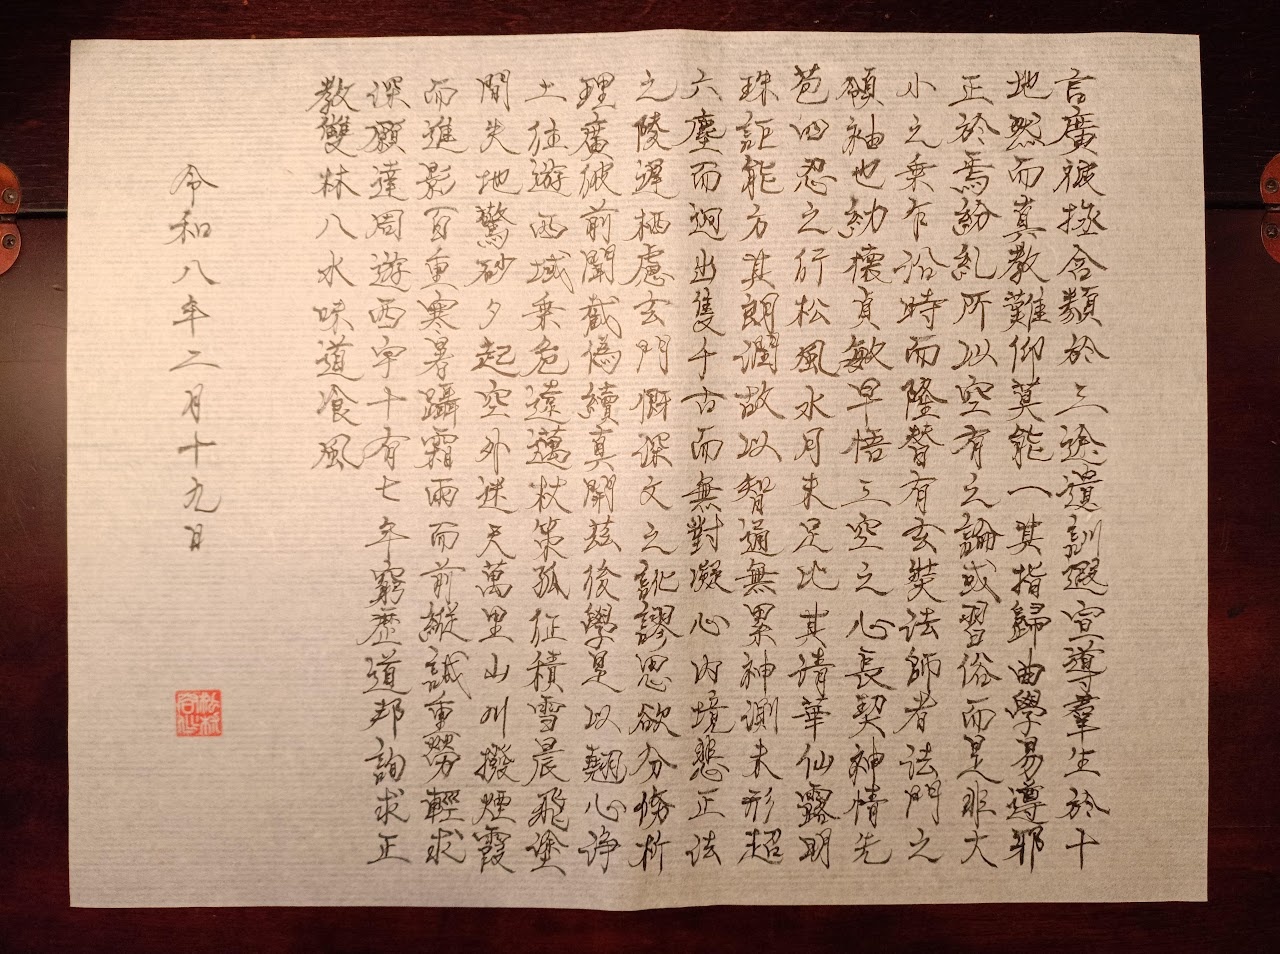 言廣被拯含類於三途遺訓遐宣導羣生於十
地然而真教難仰莫能一其指歸曲學易遵邪
正於焉紛糺所以空有之論或習俗而是非大
小之乗乍沿時而隆替有玄奘法師者法門之
領袖也幼懐貞敏早悟三空之心長契神情先
苞四忍之行松風水月未足比其清華仙露明
珠詎能方其朗潤故以智通無累神測未形超
六塵而迥出隻千古而無對凝心内境悲正法
之陵遅栖慮玄門慨深文之訛謬思欲分條析
理廣彼前聞截偽續真開茲後學是以翹心浄
土往遊西域乗危遠邁杖策孤征積雪晨飛塗
間失地驚砂夕起空外迷天萬里山川撥煙霞
而進影百重寒暑躡霜雨而前縱誠重勞輕求
深願達周遊西宇十有七年窮歴道邦詢求正
教雙林八水味道飡風
令和八年二月十九日